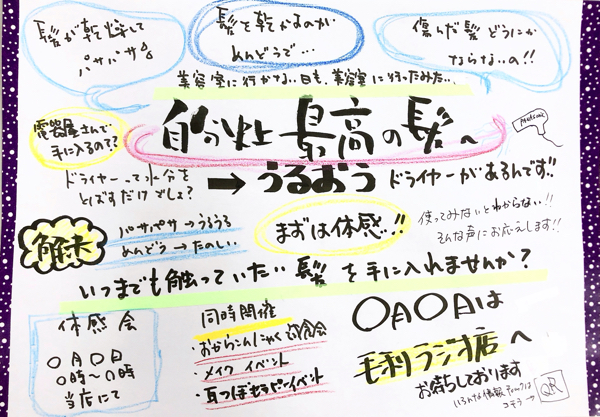 髪が乾燥して
パサパサ
髪を乾かすのが
めんどうで…
傷んだ髪どうにか
ならないの!!
美容室に行かない日も、美容室に行ったみたい…
電器屋さんで
手に入るの??
自分史上最高の髪へ
ドライヤーって水分を
とばすだけでしょ?
→うるおうドライヤーがあるんです!!
解決
パサパサ→うるうる
めんどう→たのしい
まずは体感…!!
使ってみないとわからない…!!
そんな声にお応えします!!
いつまでも触っていたい髪を手に入れませんか?
体感会
〇月〇日
〇時〜〇時
当店にて
同時開催
・おからこんにゃく試食会
・メイクイベント
・耳つぼセラピーイベント
〇月〇日は
毛利ラジオ店へ
お待ちしております
コチラ→
QR